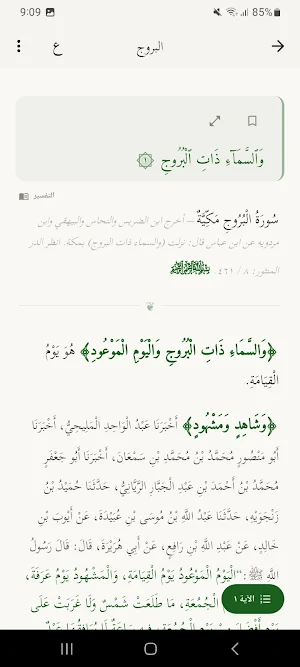 9:09 85%
البروج ع
وَٱلسَّمَآءِ ذَاتِ ٱلْبُرُوجِ ١
التفسير
سُورَةُ الْبُرُوجِ مَكِّيَّةٌ — أخرج ابن الضريس والنحاس والبيهقي وابن
مردويه عن ابن عباس قال: نزلت (والسماء ذات البروج) بمكة. انظر الدر
المنثور: ٨ / ٤٦١.
﴿وَالسَّمَاءِ ذَاتِ الْبُرُوجِ وَالْيَوْمِ الْمَوْعُودِ﴾ هُوَ يَوْمُ
الْقِيَامَةِ.
﴿وَشَاهِدٍ وَمَشْهُودٍ﴾ أَخْبَرَنَا عَبْدُ الْوَاحِدِ الْمَلِيحِيُّ، أَخْبَرَنَا
أَبُو مَنْصُورٍ مُحَمَّدُ بْنُ مُحَمَّدِ بْنِ سَمْعَانَ، أَخْبَرَنَا أَبُو جَعْفَرٍ
مُحَمَّدُ بْنُ أَحْمَدَ بْنِ عَبْدِ الْجَبَّارِ الرَّيَّانِيُّ، حَدَّثَنَا حُمَيْدُ بْنُ
زَنْجَوَيْهِ، حَدَّثَنَا عَبْدُ اللَّهِ بْنُ مُوسَى بْنِ عُبَيْدَةَ، عَنْ أَيُّوبَ بْنِ
خَالِدٍ، عَنْ عَبْدِ اللَّهِ بْنِ رَافِعٍ، عَنْ أَبِي هُرَيْرَةَ، قَالَ: قَالَ رَسُولُ
اللَّهِ ﷺ: "الْيَوْمُ الْمَوْعُودُ يَوْمُ الْقِيَامَةِ، وَالْمَشْهُودُ يَوْمُ عَرَفَةَ،
الْجُمُعَةِ، مَا طَلَعَتْ شَمْسٌ وَلَا غَرَبَتْ عَلَى
الآية ١